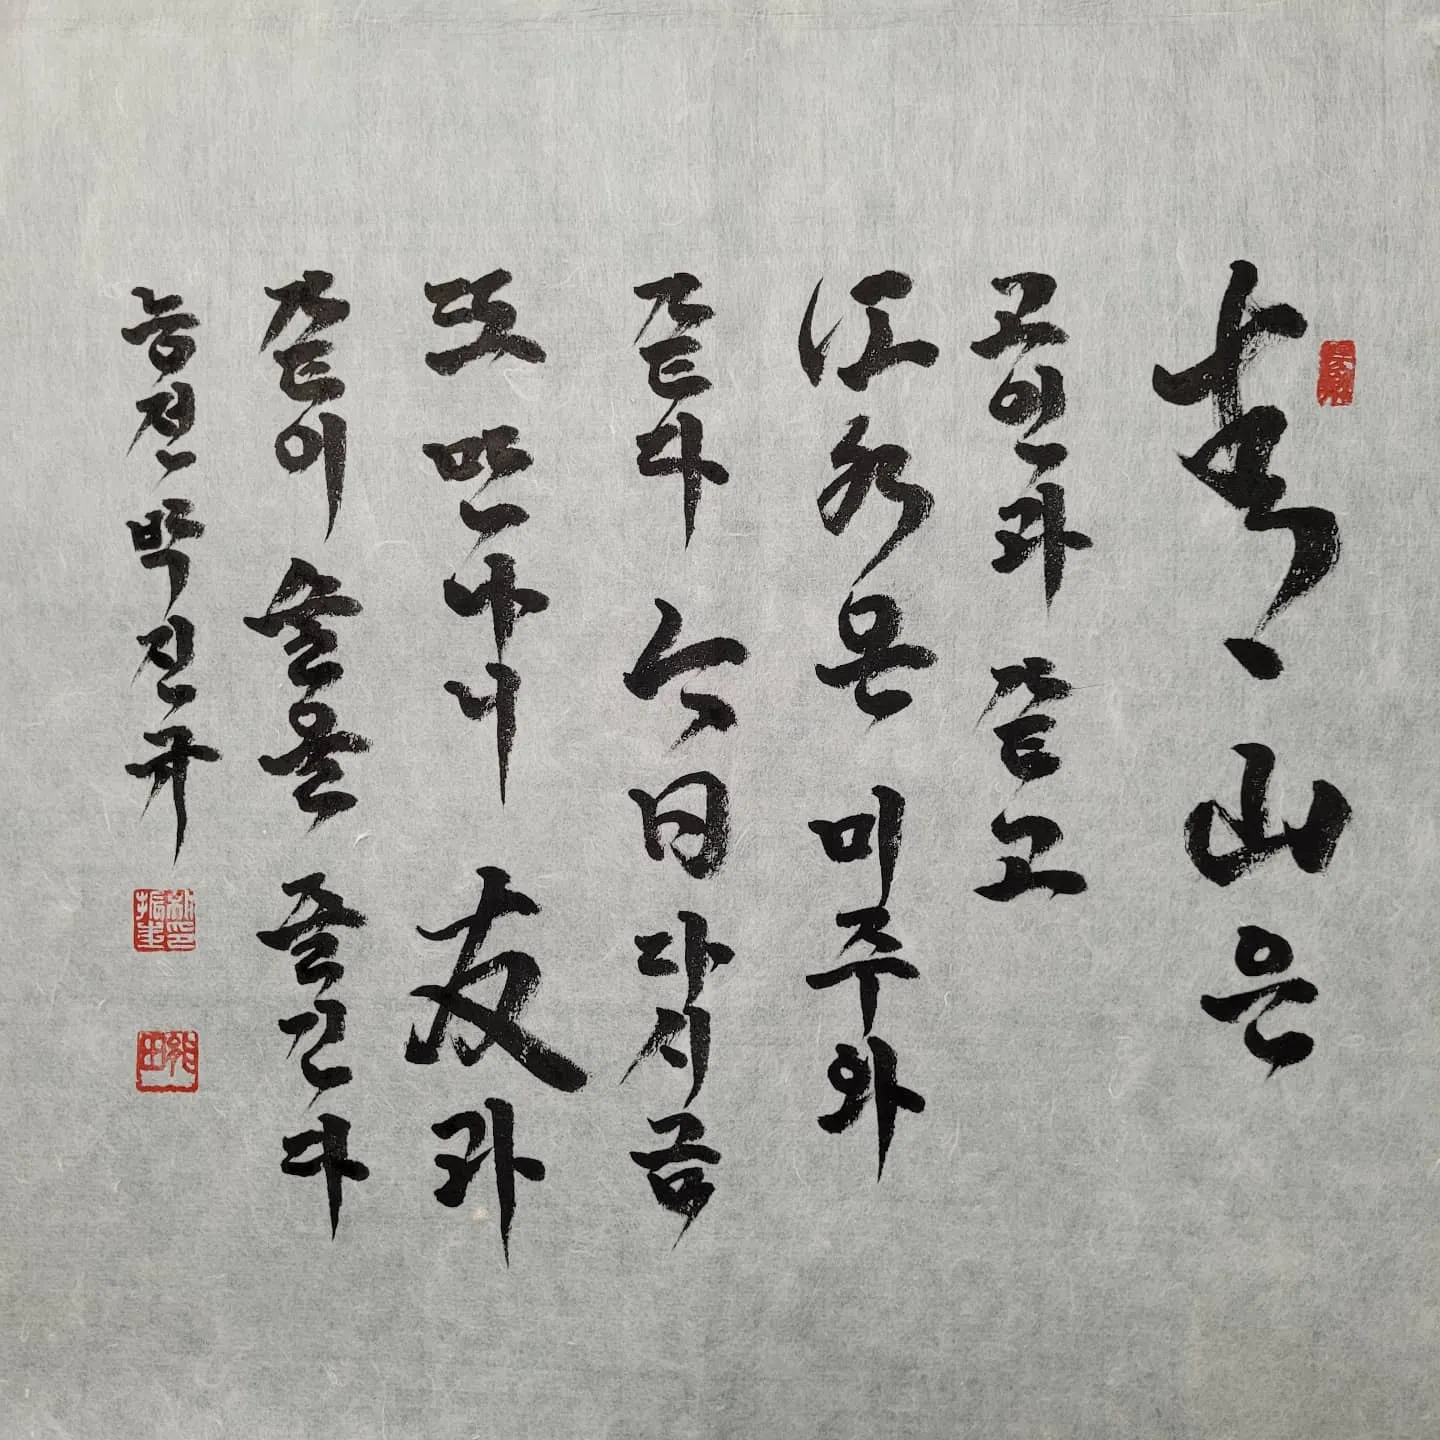 青山은
고인과 같고
江水은 미주와
같다 今日 다시금
또 만나니 友과
같이 술을 즐긴다
능전 박진규